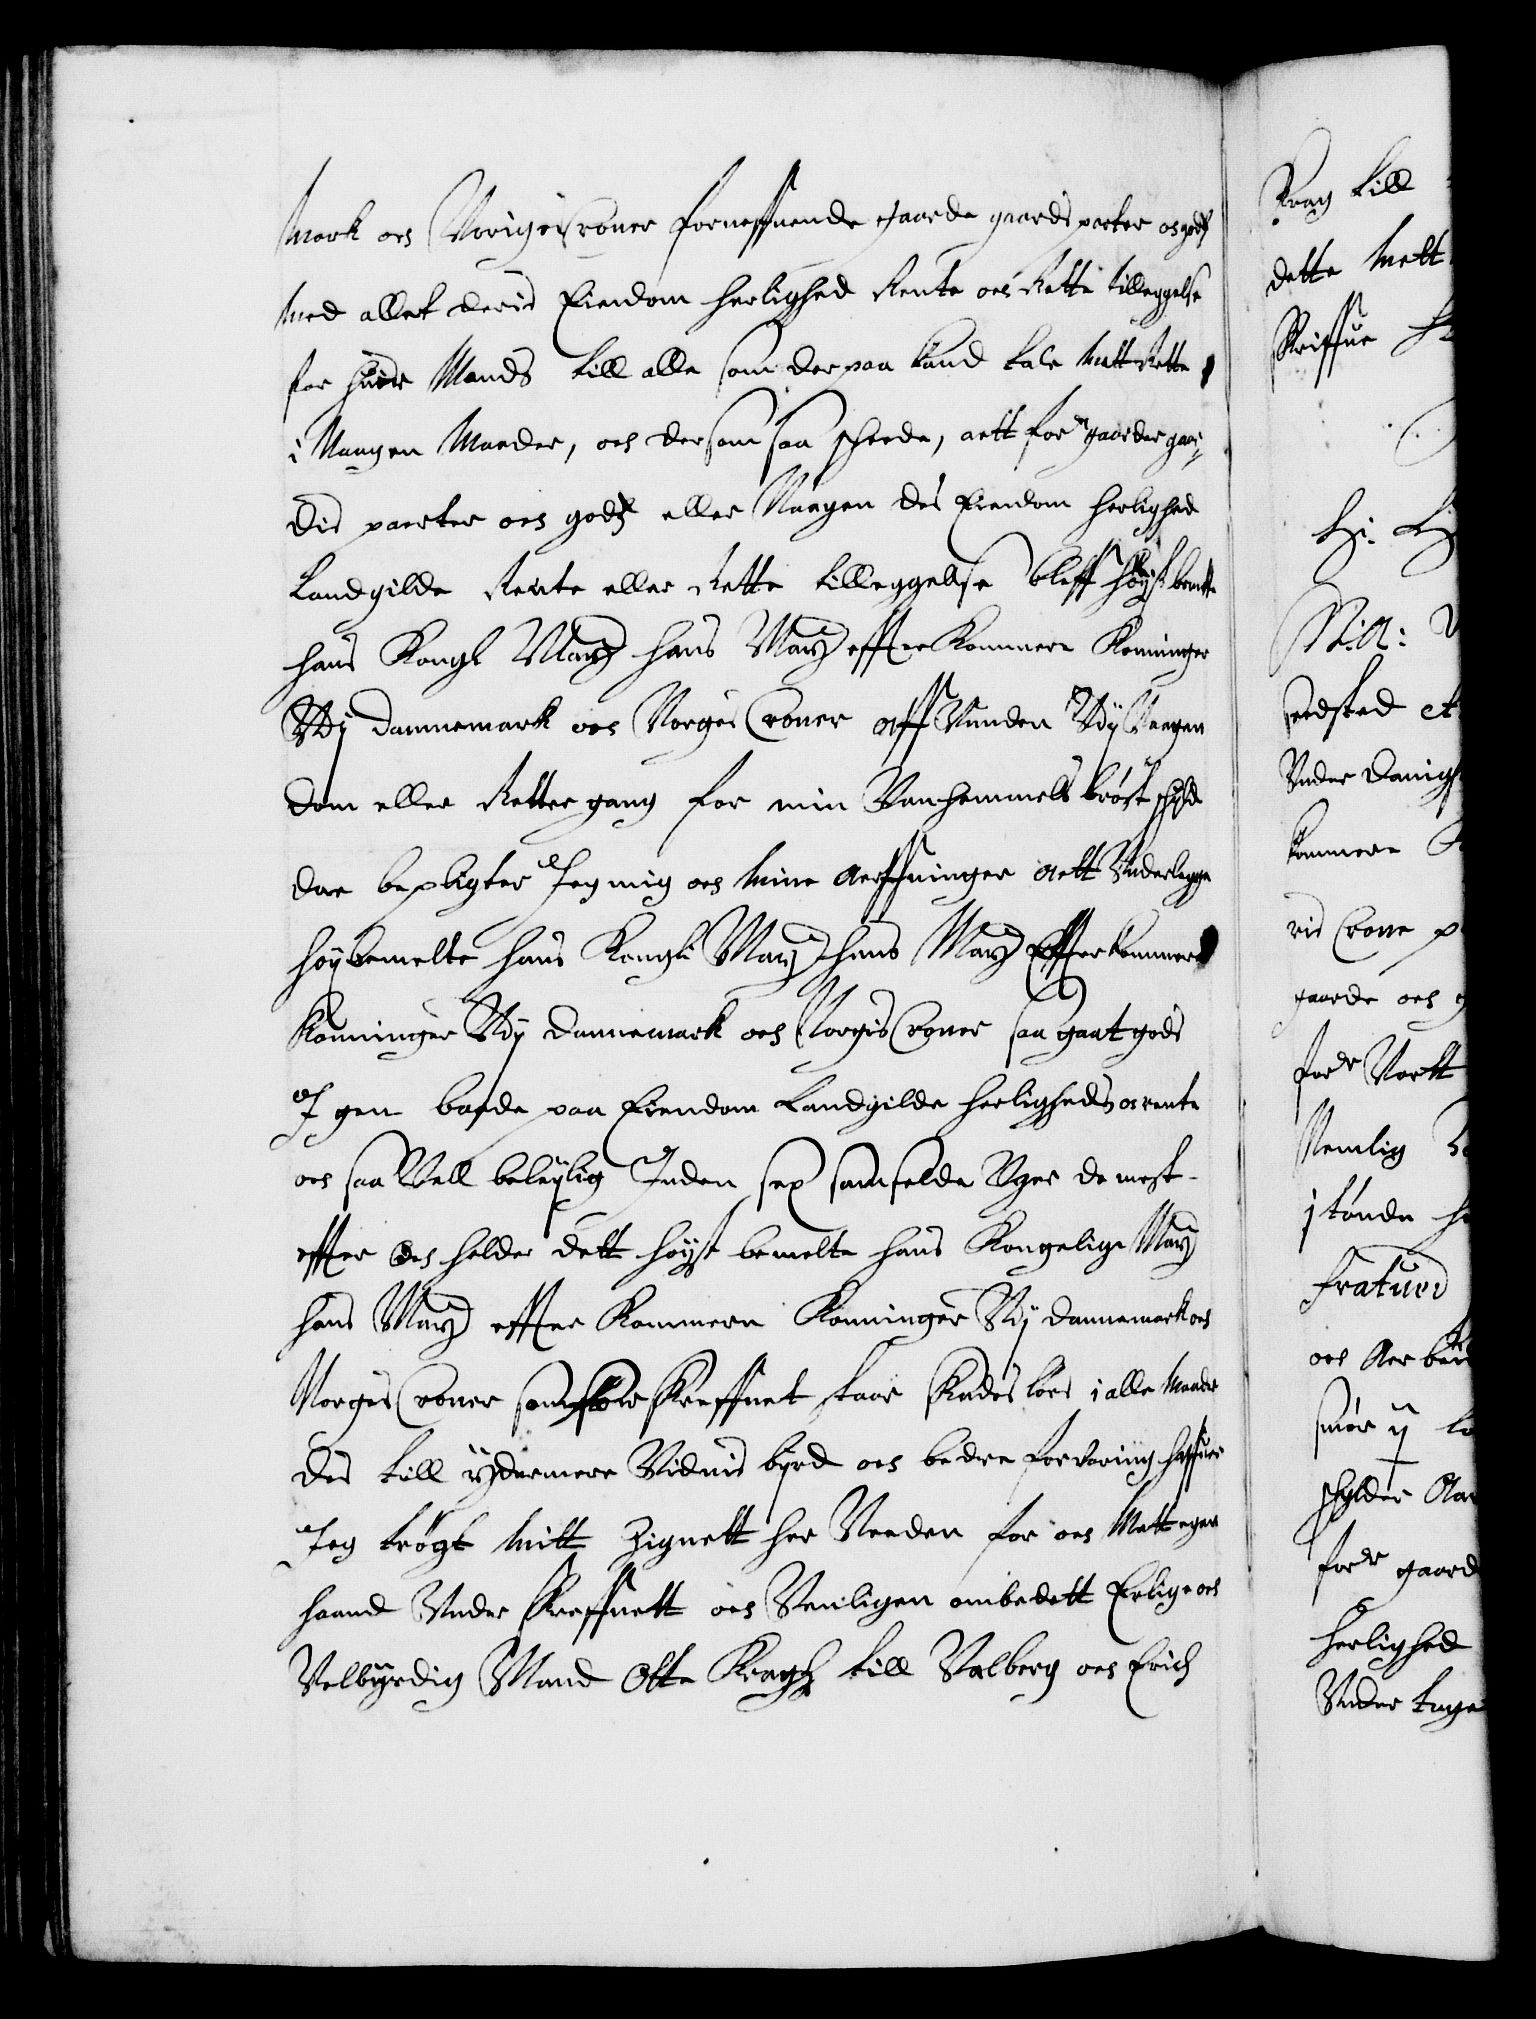 mark och Norigis Croner forneffnende gaarde gaardsparter och gods
med allet deris Eiendom herlighed Rente och Rette tilleggelse
for huer Mands till alle som der paa kand tale mett Rette
i Naagen Maader, och dersom saa scheede, att forne gaarder gaar,,
dis paarter och gods eller Naagen des Eiendom herlighed
Landgilde Rente eller Rette tilleggelse bleff høyst bemte
hans Kongl May hans May effterkommere Konninger
Udj Dannemark och Norges Croner aff Vunden Udj Naagen
Dom eller Rettergang for min Vanhemmels brøst schyld
Da bepligter Jeg mig och mine Aerffuinger att Vnderlegge
høybemelte hans Kongl May hans May Effterkommere
Konninger Udj Dannemark och Norgis Croner saa gaat gods
J gen baade paa Eiendom Landgilde herligheds och rente
och saa Vell beleylig Inden sex samfelde Uger de nest
effter des helder dett høyst bemelte hans Kongelige May
hans May effter Kommere Konninger Udj Dannemark och
Norges Croner som for Skreffuet staar Skades løes i alle Maader
Des till ydermere Vidnis byrd och bedre forvaring haffuer
Jeg trøgt mitt Zignett her Neden for och Mett egen
haand Under Skreffuett och Venligen ombedett Erlig och
Velbyrdig Mand Otte Kragh till Valberg och Erich
Krag till
dette mett
Skriffue
Under Danig
kommere
ris Crone
gaarde och
forne
Nemlig
j tønde
Fratued
och Aer
smør ij
schylder
forne gaard
herlighed
Under tage